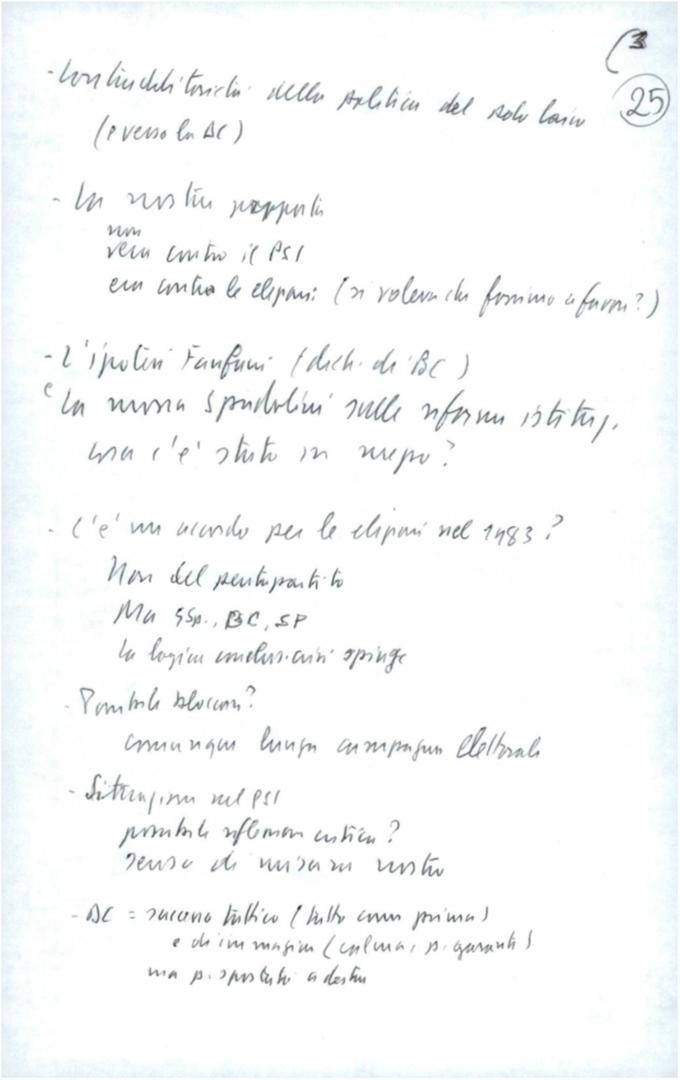 (3
25
- Contraddittorietà della politica del polo laico
(e verso la DC)
- La nostra proposta
non
era contro il PSI
era contro le elezioni (si voleva che fossimo a favore?)
- L'ipotesi Fanfani (dich. di BC)
e la mossa Spadolini sulle riforme istituz.
cosa c'è stato in mezzo?
- C'è un accordo per le elezioni nel 1983?
Non del pentapartito
Ma SSp., BC, SP
la logica spinge
- Possibile bloccare?
comunque lunga campagna elettorale
- Situazione nel PSI
possibile riflessione critica?
senso di misura nostro
- DC = successo tattico (tutto come prima)
e di immagine (calma, p. garante)
ma p. spostato a destra